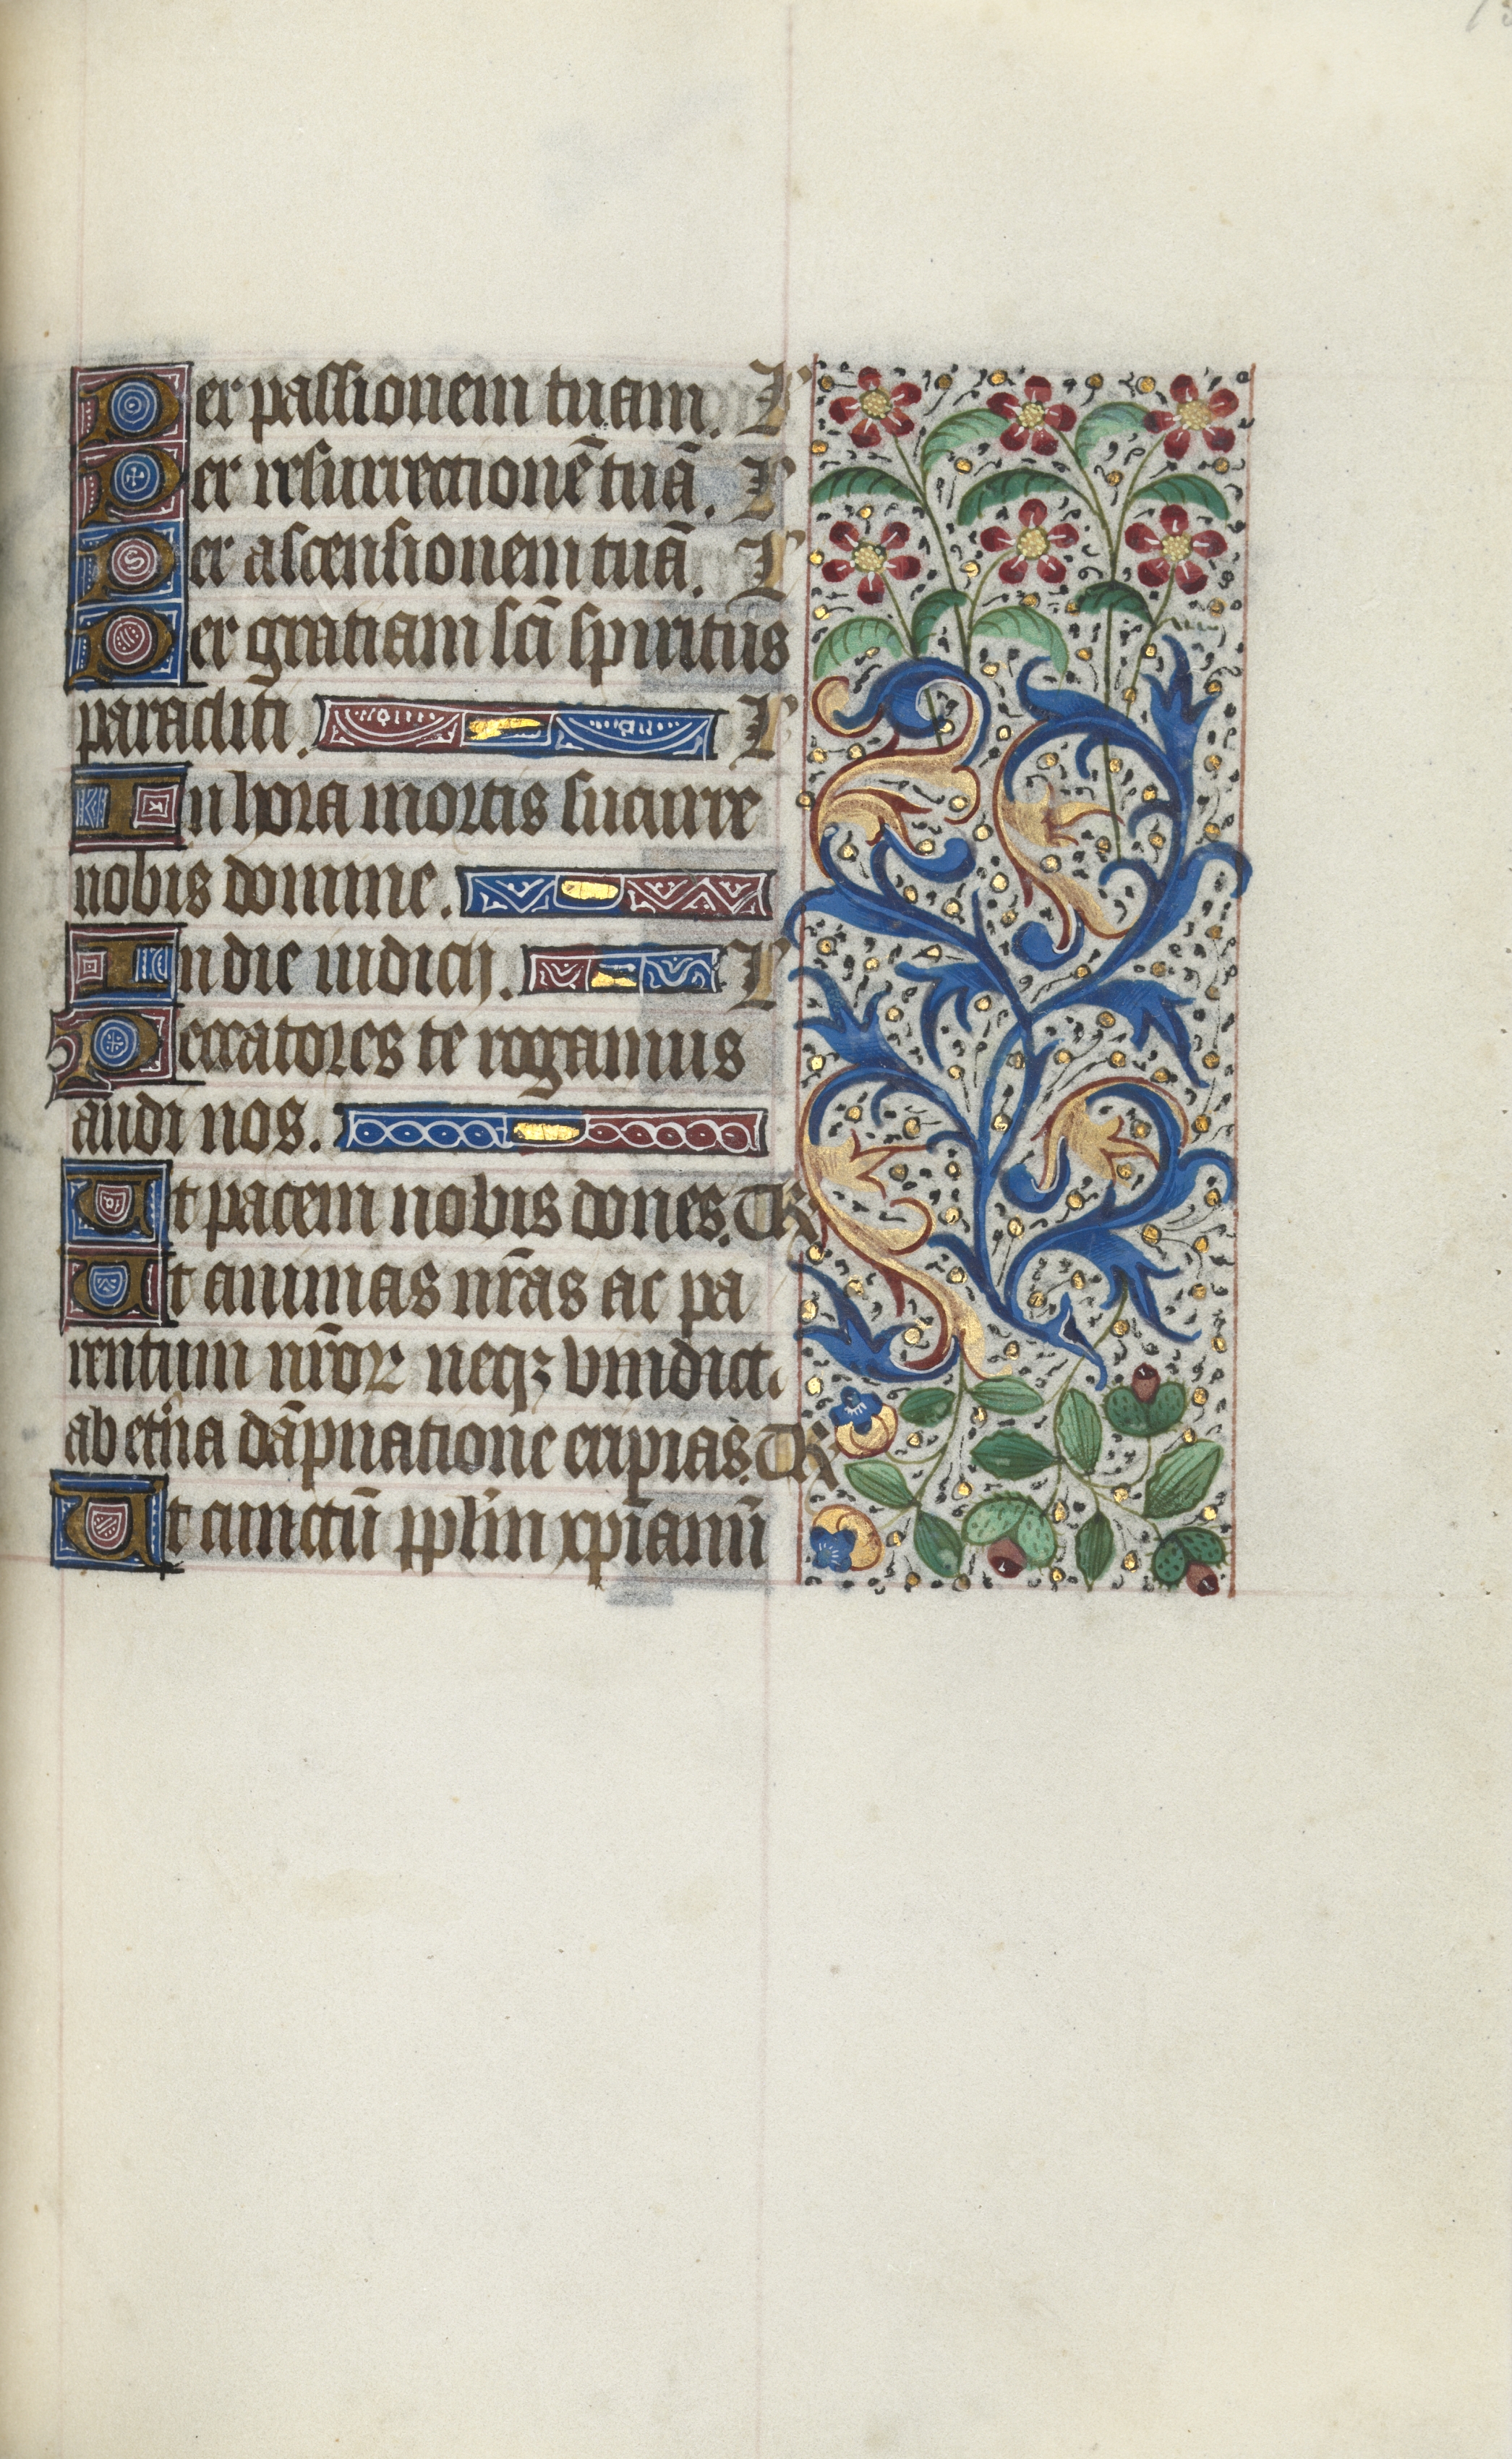 Per passionem tuam. L
Per resurrectionē tuā. L
Per ascensionem tuā. L
Per gratiam scī spiritus
paracliti. L
In hora mortis sucurre
nobis domine.
In die iudicij. L
Peccatores te rogamus
audi nos.
Ut pacem nobis dones. TR
Ut animas nr̄as ac pa
rentum nr̄oꝝ neqꝫ vindicta
ab etn̄a dāpnatione eripias. TR
Ut cunctū ppl̄m xp̄ianū